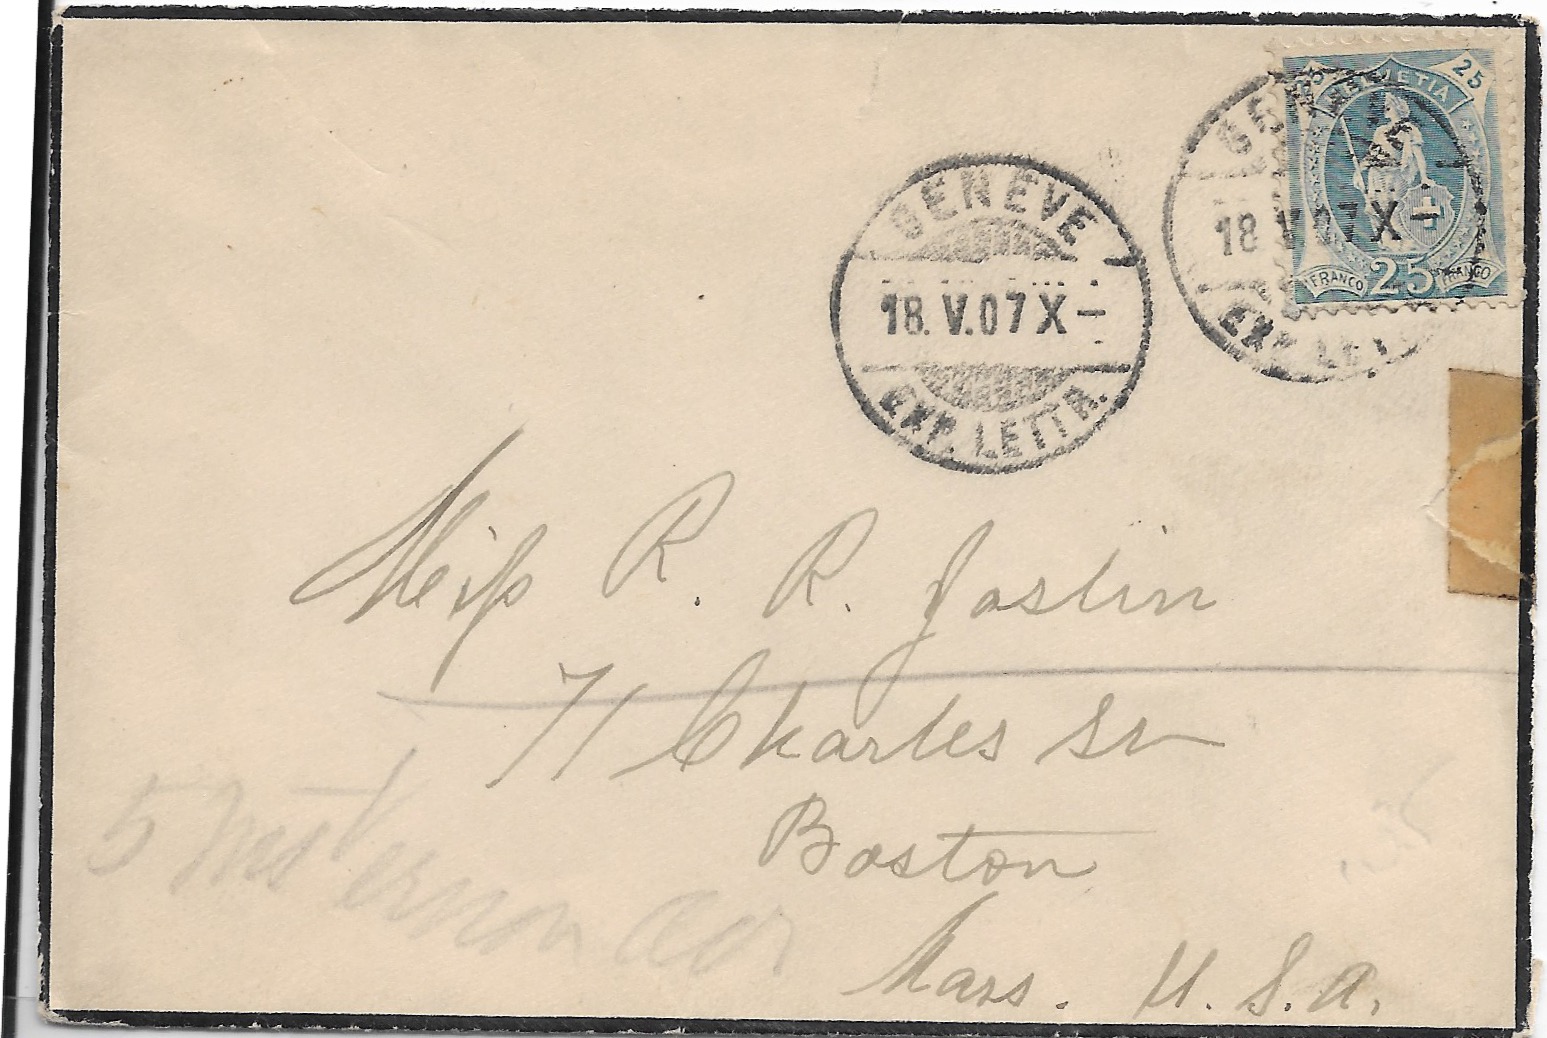 25 HELVETIA 25
FRANCO 25 FRANCO
GENÈVE
18.V.07 X–
EXP. LETTR.
GENÈVE
18 V 07 X –
EXP. LETTR.
Miss R. R. Joslin
71 Charles St
Boston
Mass. U.S.A.
5 Mt Vernon